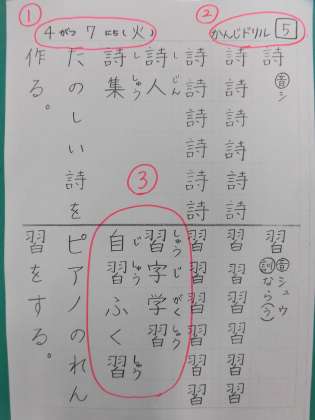 ① ②
4がつ7にち(火) かんじドリル 5
詩 音シ
詩詩詩詩詩詩
詩詩詩詩詩詩
詩人 しじん
詩集 ししゅう
たのしい詩を
作る。
③
習 音シュウ 訓なら(う)
習習習習習習
習習習習習習
習字学習 しゅうじがくしゅう
自習ふく習 じしゅうしゅう
ピアノのれん
習をする。